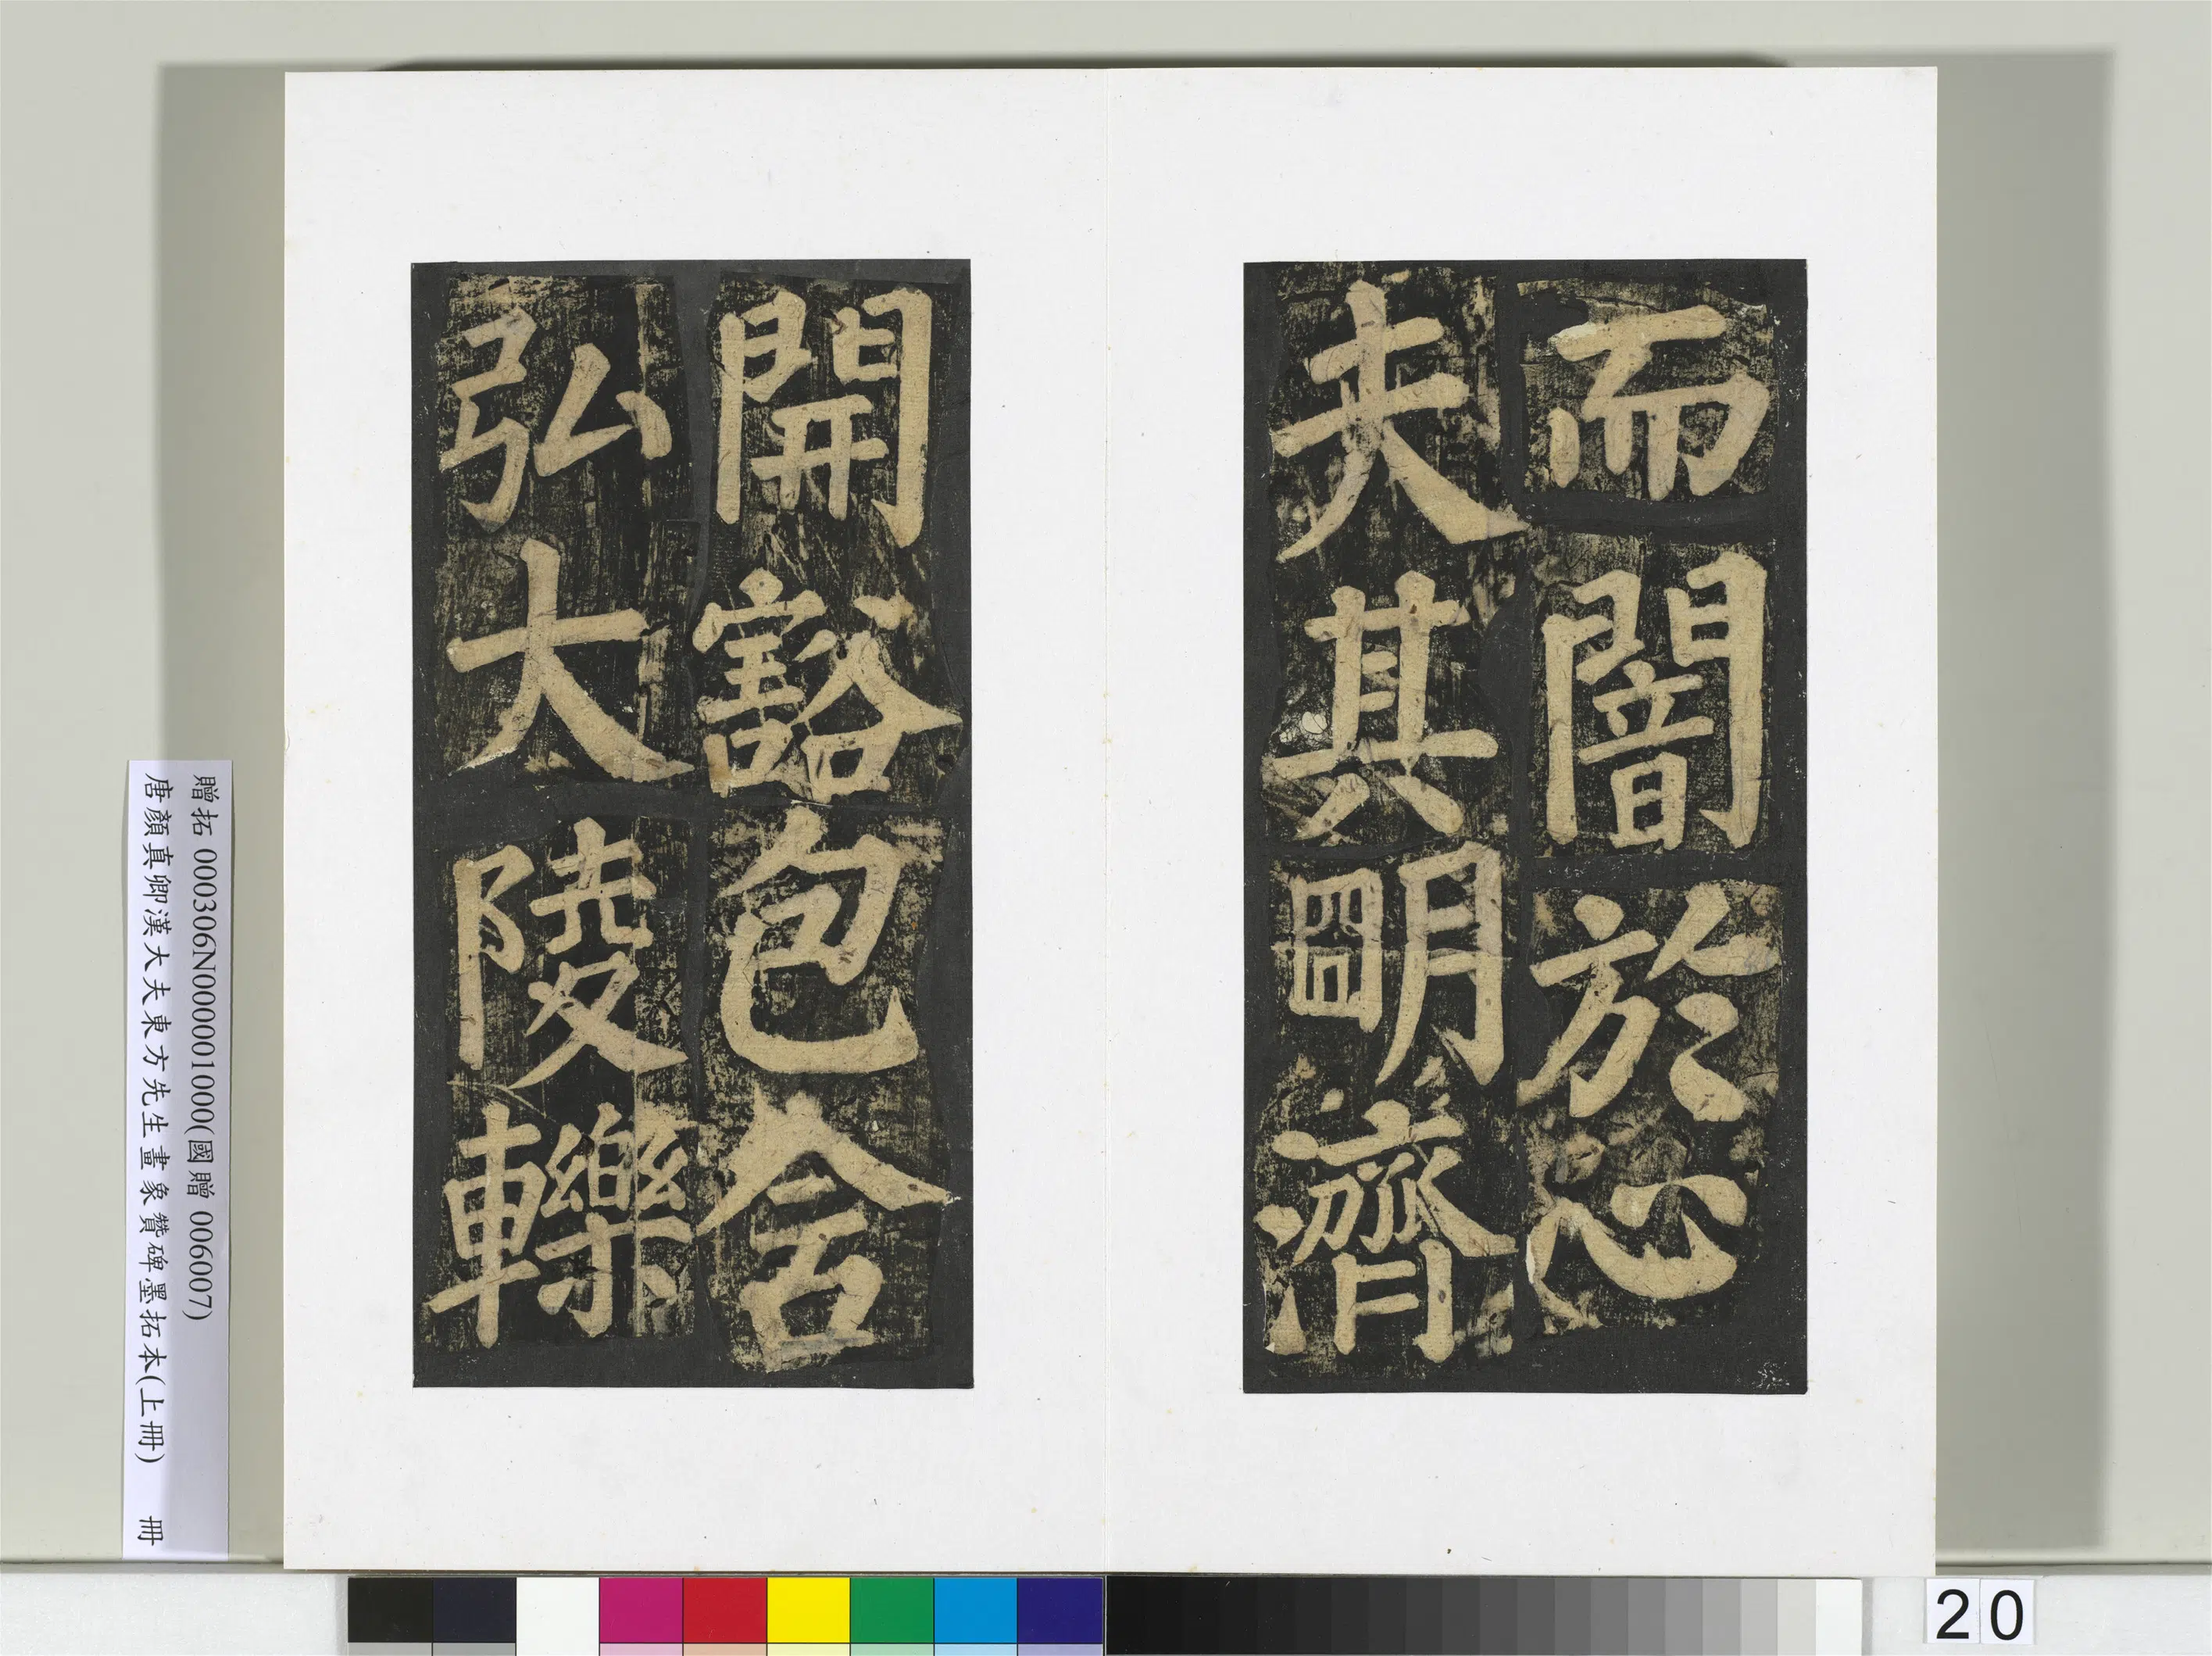 而闇於心
夫其明濟
開豁包含
弘大陵轢
贈拓 000306N000001000(國贈 006007)
唐顏真卿漢大夫東方先生畫象贊碑墨拓本(上冊) 冊
20